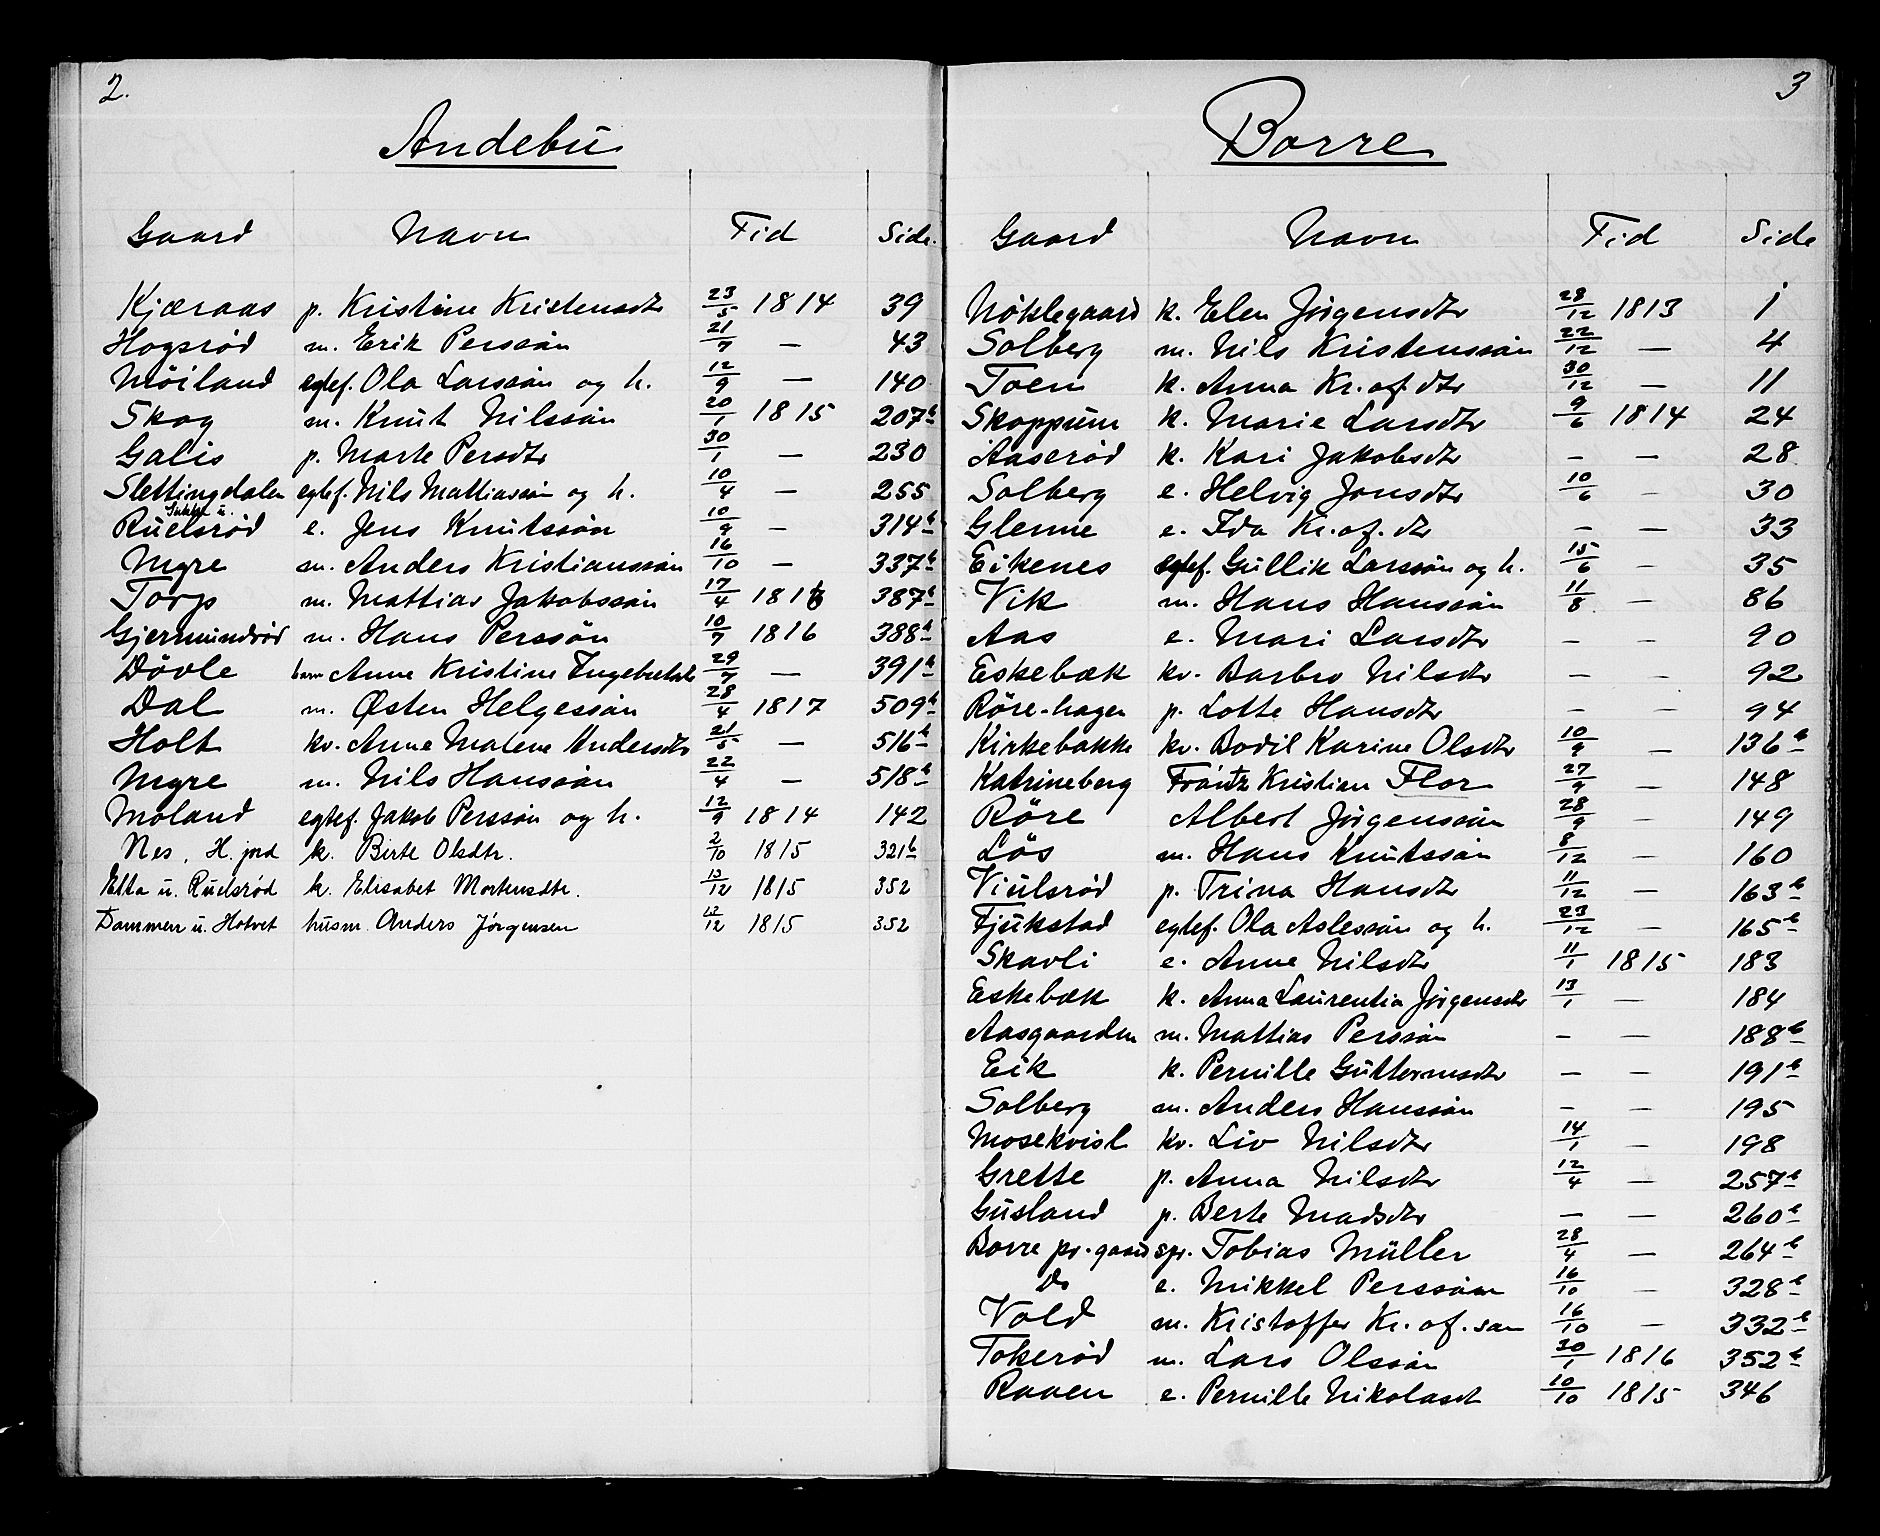 2.
Andebu
Gaard Navn Tid Side.
Kjæraas p. Kristine Kristensdtr 23/5 1814 39
Hogsrød m. Erik Perssøn 21/7 — 43
Møiland egtef. Ola Larssøn og h. 12/9 — 140
Skog m. Knut Nilssøn 20/1 1815 207b
Galis p. Marte Persdtr 30/1 — 230
Slettingdalen egtef. Nils Mattiassøn og h. 10/4 — 255
Ruelsrød e. Jens Knutssøn 10/9 — 314b
Myre m. Anders Kristianssøn 16/10 — 337b
Torp m. Mattias Jakobssøn 17/4 1816 387b
Gjermundrød m. Hans Perssøn 10/7 1816 388b
Døvle barn Anne Kristine Ingebretsdtr 29/7 — 391b
Dal m. Østen Helgessøn 28/4 1817 509b
Holt kv. Anne Malene Andersdtr 21/5 — 516b
Myre m. Nils Hanssøn 22/4 — 518b
Moland egtef. Jakob Perssøn og h. 12/9 1814 142
Nes, H. jord k. Birte Olsdtr. 2/10 1815 321b
Etta u. Ruelsrød k. Elisabet Mortensdtr. 13/12 1815 352
Dammen u. Hotvet husm. Anders Jørgensen 13/12 1815 352
3
Borre
Gaard Navn Tid Side
Nøklegaard k. Elen Jørgensdtr 28/12 1813 1
Solberg m. Nils Kristenssøn 22/12 — 4
Toen k. Anna Kr.of.dtr 30/12 — 11
Skoppum k. Marie Larsdtr 9/6 1814 24
Aaserød k. Kari Jakobsdtr — — 28
Solberg e. Helvig Jonsdtr 10/6 — 30
Glenne e. Ida Kr.of.dtr — — 33
Eikenes egtef. Gullik Larssøn og h. 15/6 — 35
Vik m. Hans Hanssøn 11/8 — 86
Aas e. Mari Larsdtr — — 90
Eskebæk kv. Barbro Nilsdtr — — 92
Røre-hagen p. Lotte Hansdtr — — 94
Kirkebakke kv. Bodil Karine Olsdtr 10/9 — 136b
Katrineberg Frantz Kristian Flor 27/9 — 148
Røre Albert Jørgenssøn 28/9 — 149
Løs m. Hans Knutssøn 8/12 — 160
Viulsrød p. Trina Hansdtr 11/12 — 163b
Fjukstad egtef. Ola Aslessøn og h. 23/12 — 165b
Skavli e. Anne Nilsdtr 11/1 1815 183
Eskebæk k. Anna Laurentia Jørgensdtr 13/1 — 184
Aasgaarden m. Mattias Perssøn — — 188b
Eik k. Pernille Guttormsdtr — — 191b
Solberg m. Anders Hanssøn — — 195
Mosekvist kv. Liv Nilsdtr 14/1 — 198
Grette p. Anna Nilsdtr 12/4 — 257b
Gusland p. Berte Madsdtr — — 260b
Borre pr.gaard spr. Tobias Müller 28/4 — 264b
Do e. Mikkel Perssøn 16/10 — 328b
Vold m. Kristoffer Kr.of.søn 16/10 — 332b
Tokerød m. Lars Olssøn 30/1 1816 352b
Raaen e. Pernille Nikolasdt 10/10 1815 346